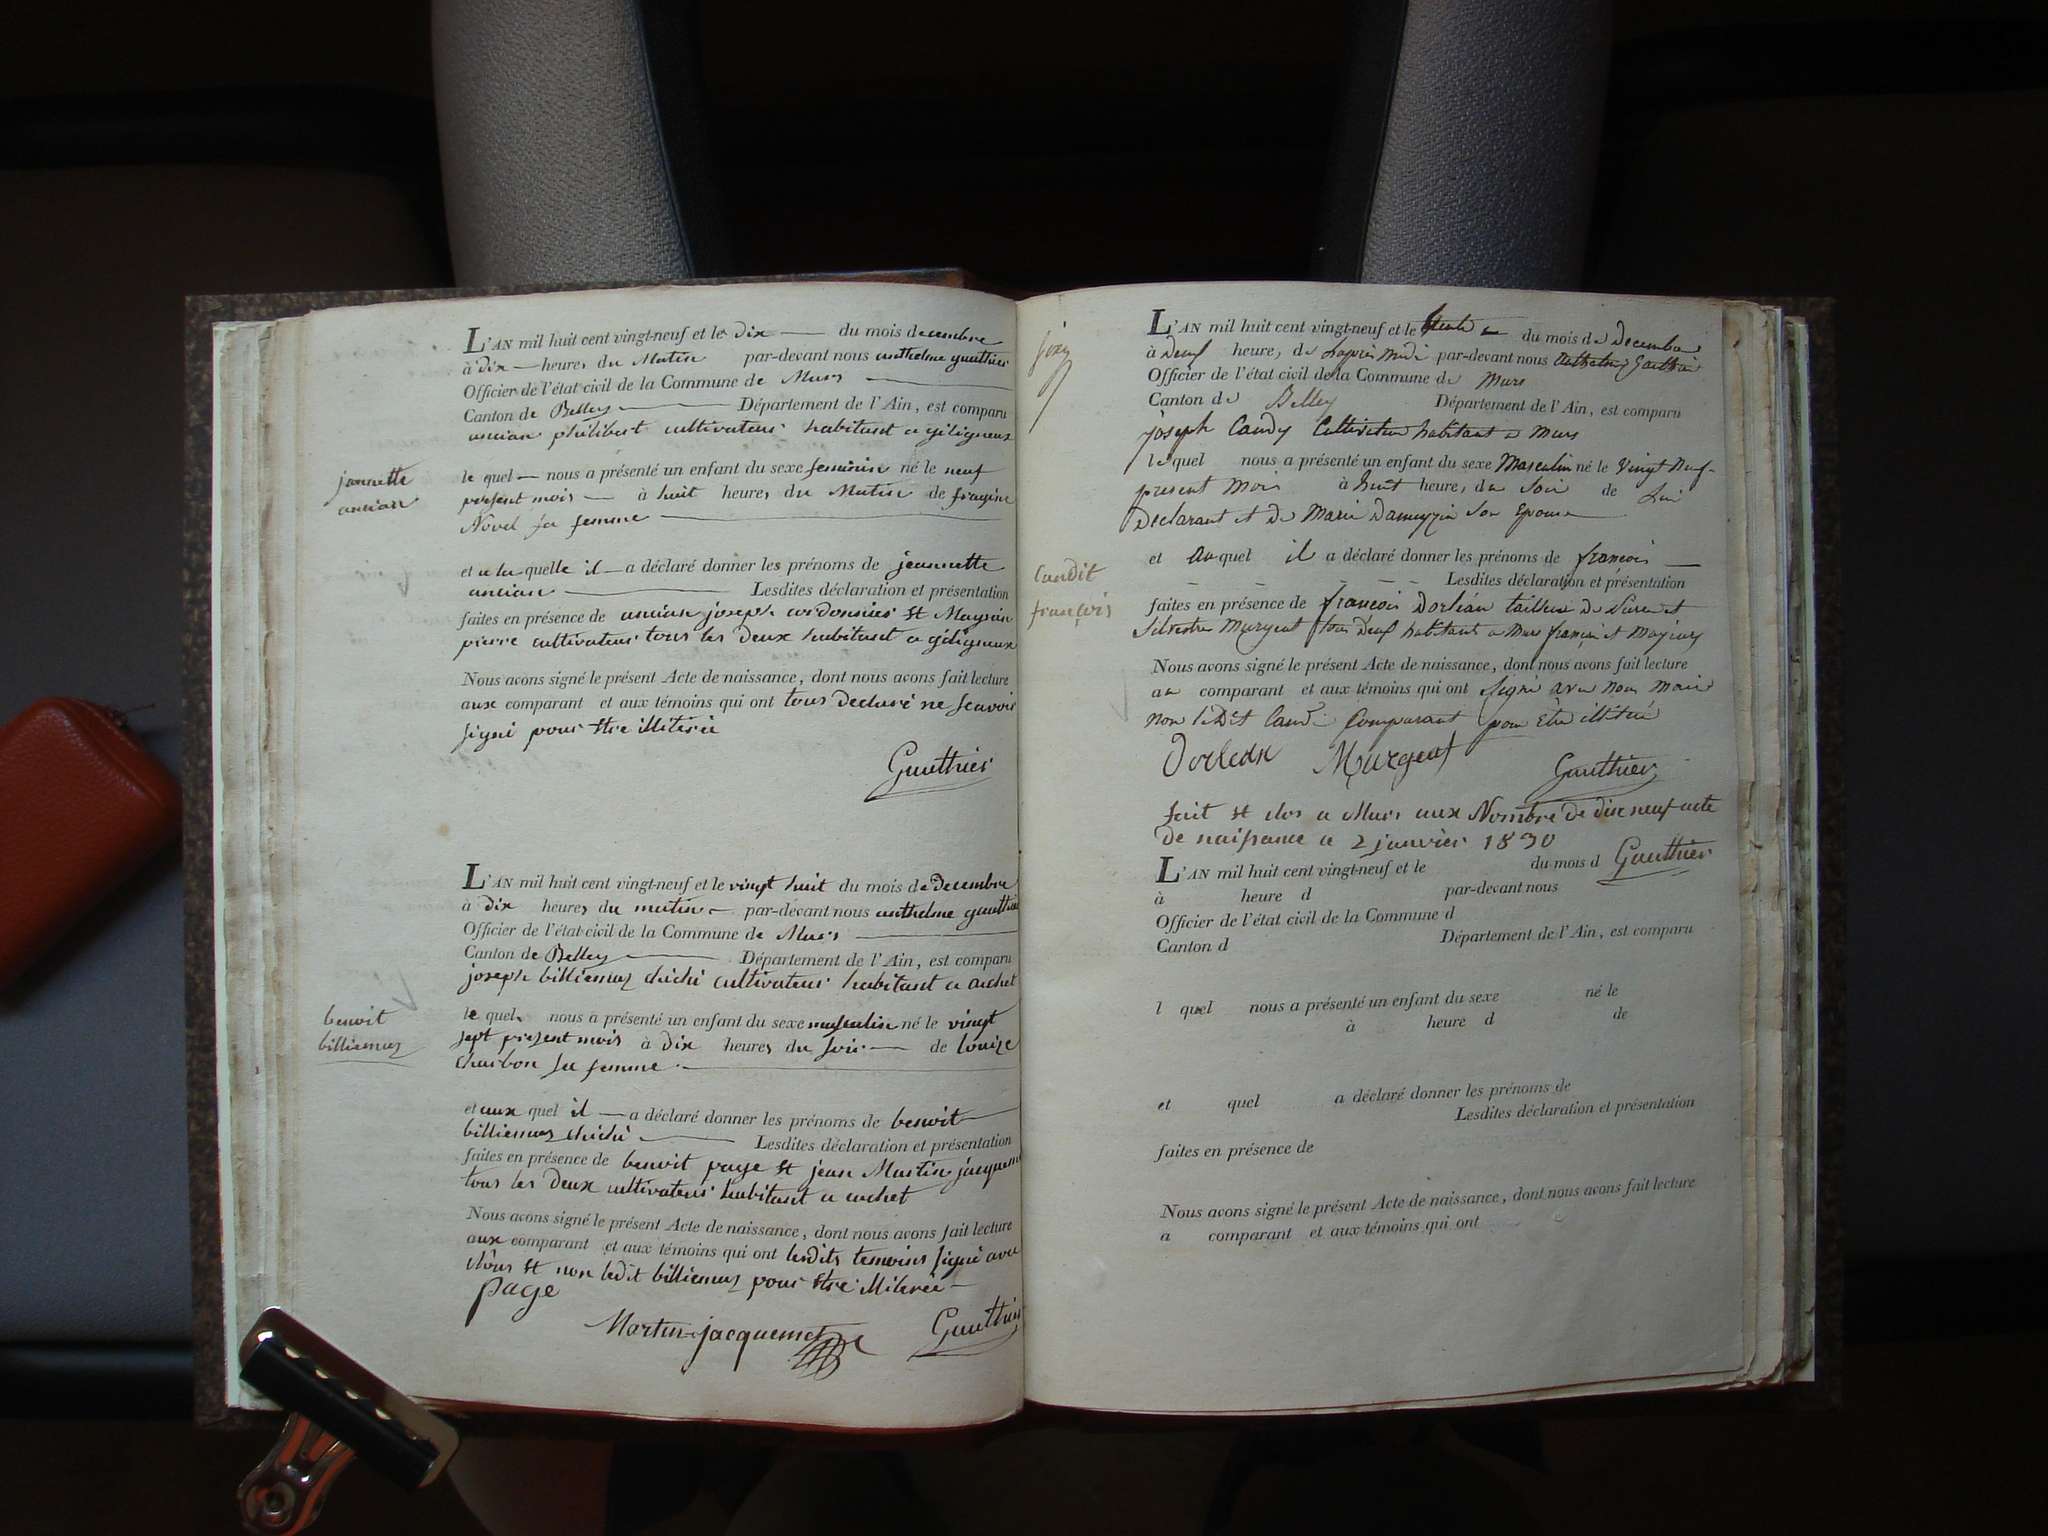 L'AN mil huit cent vingt-neuf et le dix du mois decembre
à dix heures du Matin par-devant nous anthelme gauthier
Officier de l'état civil de la Commune de Murs
Canton de Belley Département de l'Ain, est comparu
ancian philibert cultivateur habitant a gêligneux
jannette
ancian
le quel nous a présenté un enfant du sexe feminin né le neuf
present mois à huit heures du Matin de
Novel sa femme
et a la quelle il a déclaré donner les prénoms de jeannette
ancian Lesdites déclaration et présentation
faites en présence de ancian joseph cordonnier et Magnin
pierre cultivateur tous les deux habitant a gêligneux
Nous avons signé le présent Acte de naissance, dont nous avons fait lecture
aux comparant et aux témoins qui ont tous declaré ne scavoir
signé pour etre illiteré
Gauthier
L'AN mil huit cent vingt-neuf et le vingt huit du mois de Decembre
à dix heures du matin par-devant nous anthelme gauthier
Officier de l'état civil de la Commune de Murs
Canton de Belley Département de l'Ain, est comparu
joseph billiemaz chichi cultivateur habitant a archet
benoit
billiemaz
le quel nous a présenté un enfant du sexe masculin né le vingt
sept present mois à dix heures du soir de louize
charbon sa femme
et aux quel il a déclaré donner les prénoms de benoit
billiemaz chichi Lesdites déclaration et présentation
faites en présence de benoit page et jean Martin jacquemet
tous les deux cultivateur habitant a archet
Nous avons signé le présent Acte de naissance, dont nous avons fait lecture
aux comparant et aux témoins qui ont lesdits temoins signé avec
nous et non ledit billiemaz pour etre illiteré
page
Martin jacquemet Gauthier
L'AN mil huit cent vingt-neuf et le trente du mois de Decembre
à Deux heure, de l'apres midi par-devant nous anthelme Gauthier
Officier de l'état civil de la Commune de Murs
Canton de Belley Département de l'Ain, est comparu
joseph Candy Cultivateur habitant a Murs
le quel nous a présenté un enfant du sexe Masculin né le Vingt Neuf
present Mois à huit heure, du Soir de Lui
Declarant et de Marie son Epouse
Candit
françois
et au quel il a déclaré donner les prénoms de françois
Lesdites déclaration et présentation
faites en présence de françois Dorlean tailleur de Pierre et
Silvestre Margeut tous deux habitants a Murs
Nous avons signé le présent Acte de naissance, dont nous avons fait lecture
au comparant et aux témoins qui ont signé avec nous Maire
non le Dit Comparant pour Etre illitré
Dorlean Margeut Gauthier
fait et clos a Murs aux Nombre de dix neuf acte
de naissance a 2 janvier 1830
Gauthier
L'AN mil huit cent vingt-neuf et le du mois d
à heure d par-devant nous
Officier de l'état civil de la Commune d
Canton d Département de l'Ain, est comparu
l quel nous a présenté un enfant du sexe né le
à heure d de
et quel a déclaré donner les prénoms de
Lesdites déclaration et présentation
faites en présence de
Nous avons signé le présent Acte de naissance, dont nous avons fait lecture
a comparant et aux témoins qui ont